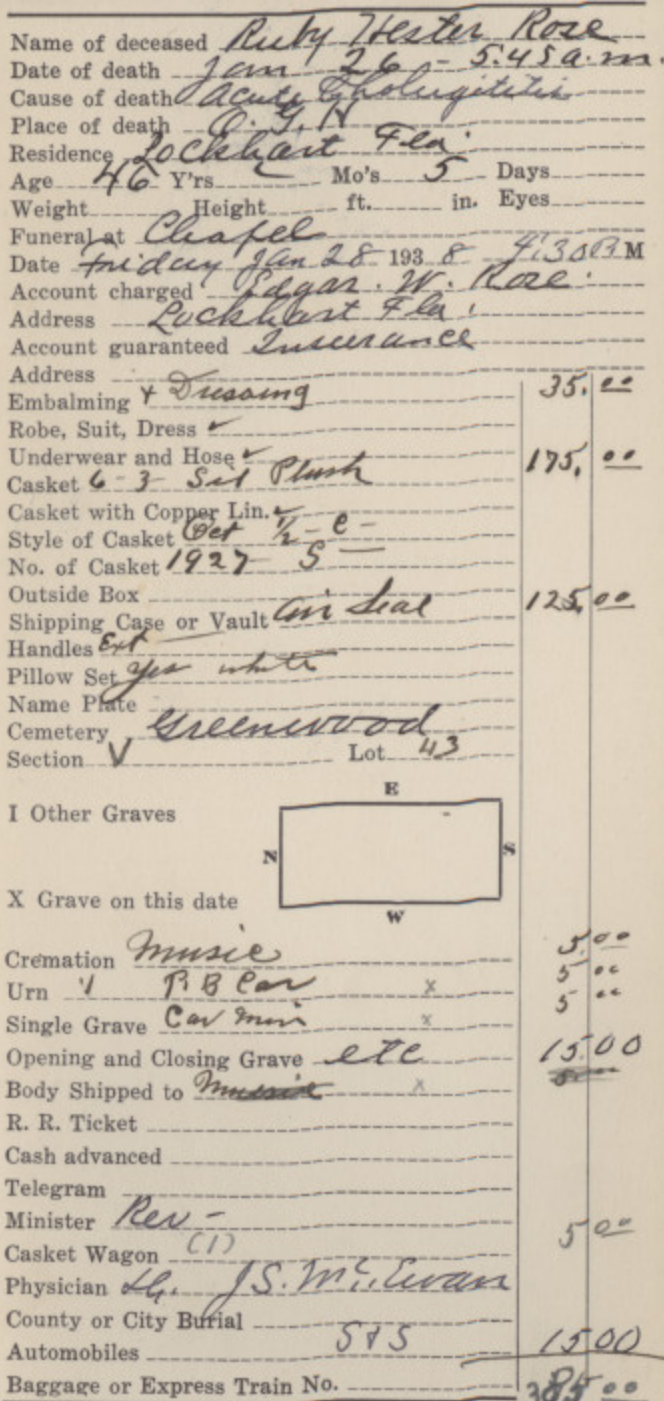 Name of deceased Ruby Hester Rose
Date of death Jan 26 - 5:45 a.m.
Cause of death Acute
Place of death O. G. H
Residence Lockhart Fla.
Age 46 Y'rs Mo's 5 Days
Weight Height ft. in. Eyes
Funeral at Chapel
Date Friday Jan 28 1938 4:30 P M
Account charged Edgar. W. Rose.
Address Lockhart Fla.
Account guaranteed Insurance
Address
Embalming + Dressing 35.00
Robe, Suit, Dress ✓
Underwear and Hose ✓ 175.00
Casket 6-3 Sil Plush
Casket with Copper Lin. ✓
Style of Casket Oct ½ - C -
No. of Casket 1927 S
Outside Box
Shipping Case or Vault Air Seal 125.00
Handles Ext
Pillow Set yes white
Name Plate
Cemetery Greenwood
Section V Lot 43
E
I Other Graves
N S
X Grave on this date
W
Cremation Music 5.00
Urn P. B Car x 5 00
Single Grave Car x 5 00
Opening and Closing Grave etc 15.00
Body Shipped to Music x 5
R. R. Ticket
Cash advanced
Telegram
Minister Rev - 5 00
Casket Wagon (1)
Physician J.S. McEwan
County or City Burial
Automobiles S & S 15.00
Baggage or Express Train No. 385.00